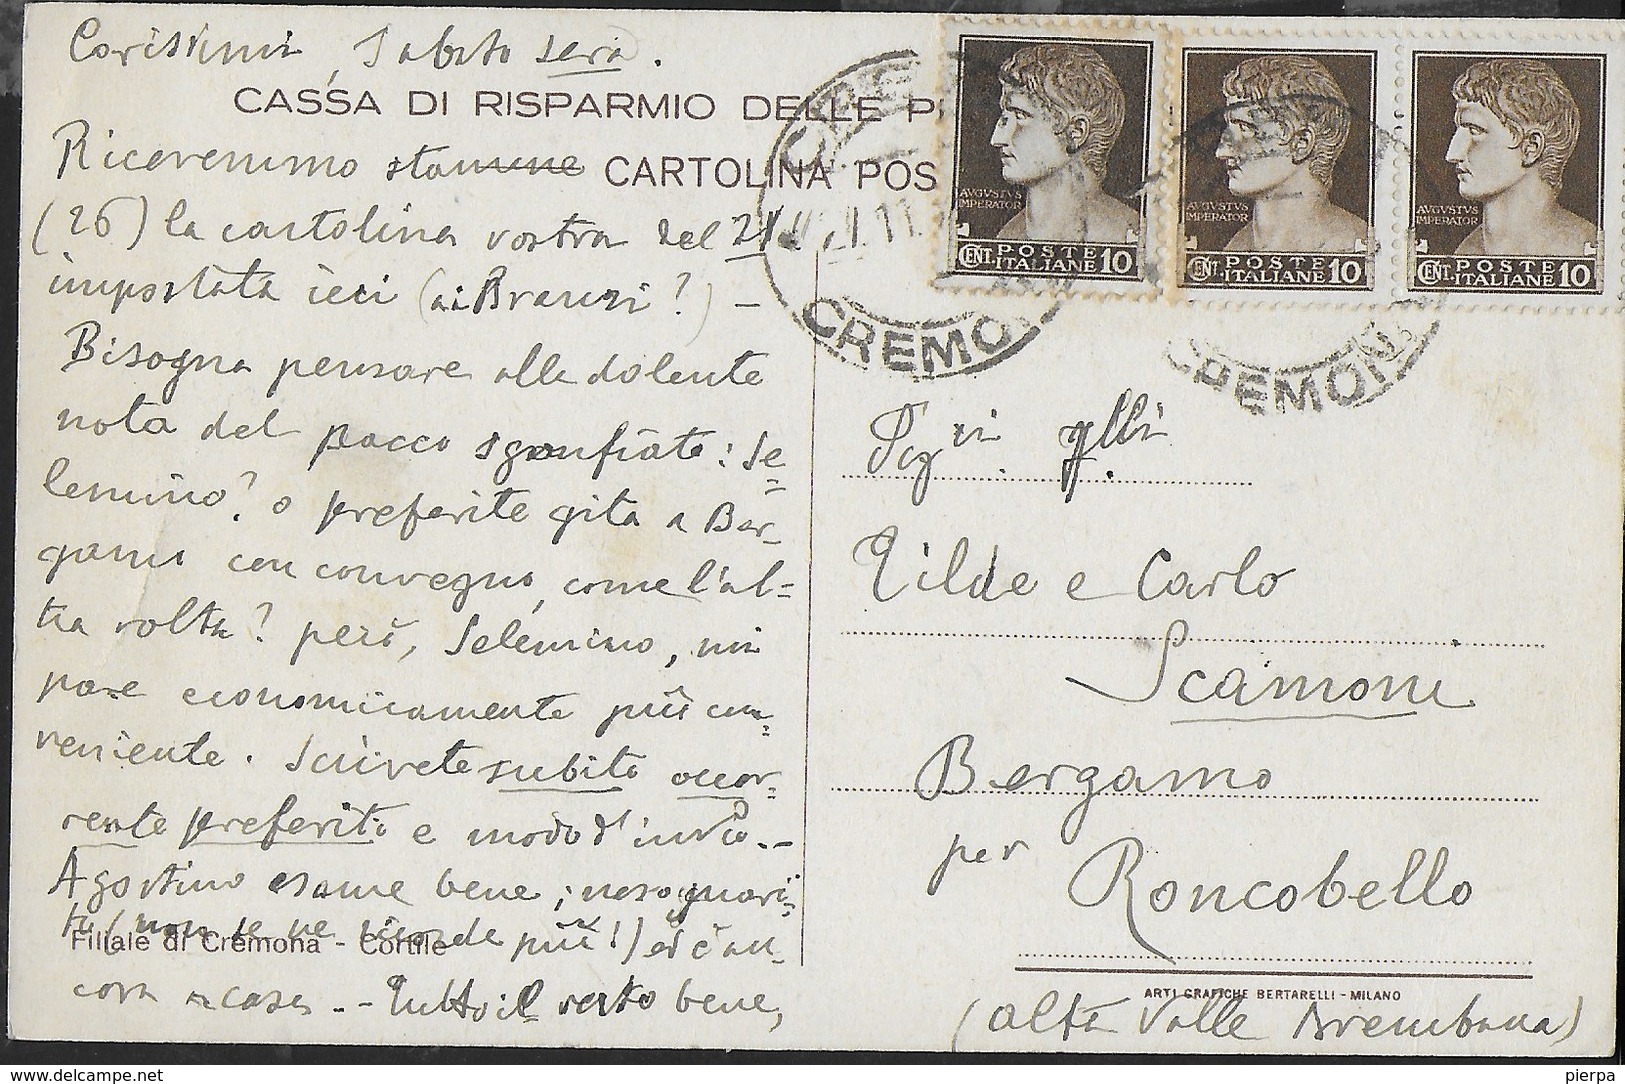 Carissimi, Sabato sera.
CASSA DI RISPARMIO DELLE P
Ricevemmo stamane
CARTOLINA POS
(26) la cartolina vostra del 21
impostata ieri (ai Branzi?) -
Bisogna pensare alla dolente
nota del pacco sgonfiato: Se=
lemino? o preferite gita a Ber-
gamo con convegno, come l'al=
tra volta? però, Selemino, mi
pare economicamente più con=
veniente. Scrivete subito occor-
rente preferito e modo d'invio.-
Agostino esame bene; naso guari=
to (non se ne ricorda più!) ed è an-
Filiale di Cremona - Cortile
cora a casa -- Tutto il resto bene,
AVGVSTVS
IMPERATOR
CENT. POSTE ITALIANE 10
AVGVSTVS
IMPERATOR
CENT. POSTE ITALIANE 10
AVGVSTVS
IMPERATOR
CENT. POSTE ITALIANE 10
CREMO
CREMON
gri
Tilde e Carlo
Scamoni
Bergamo
per
Roncobello
ARTI GRAFICHE BERTARELLI - MILANO
(alta Valle Brembana)
pierpa